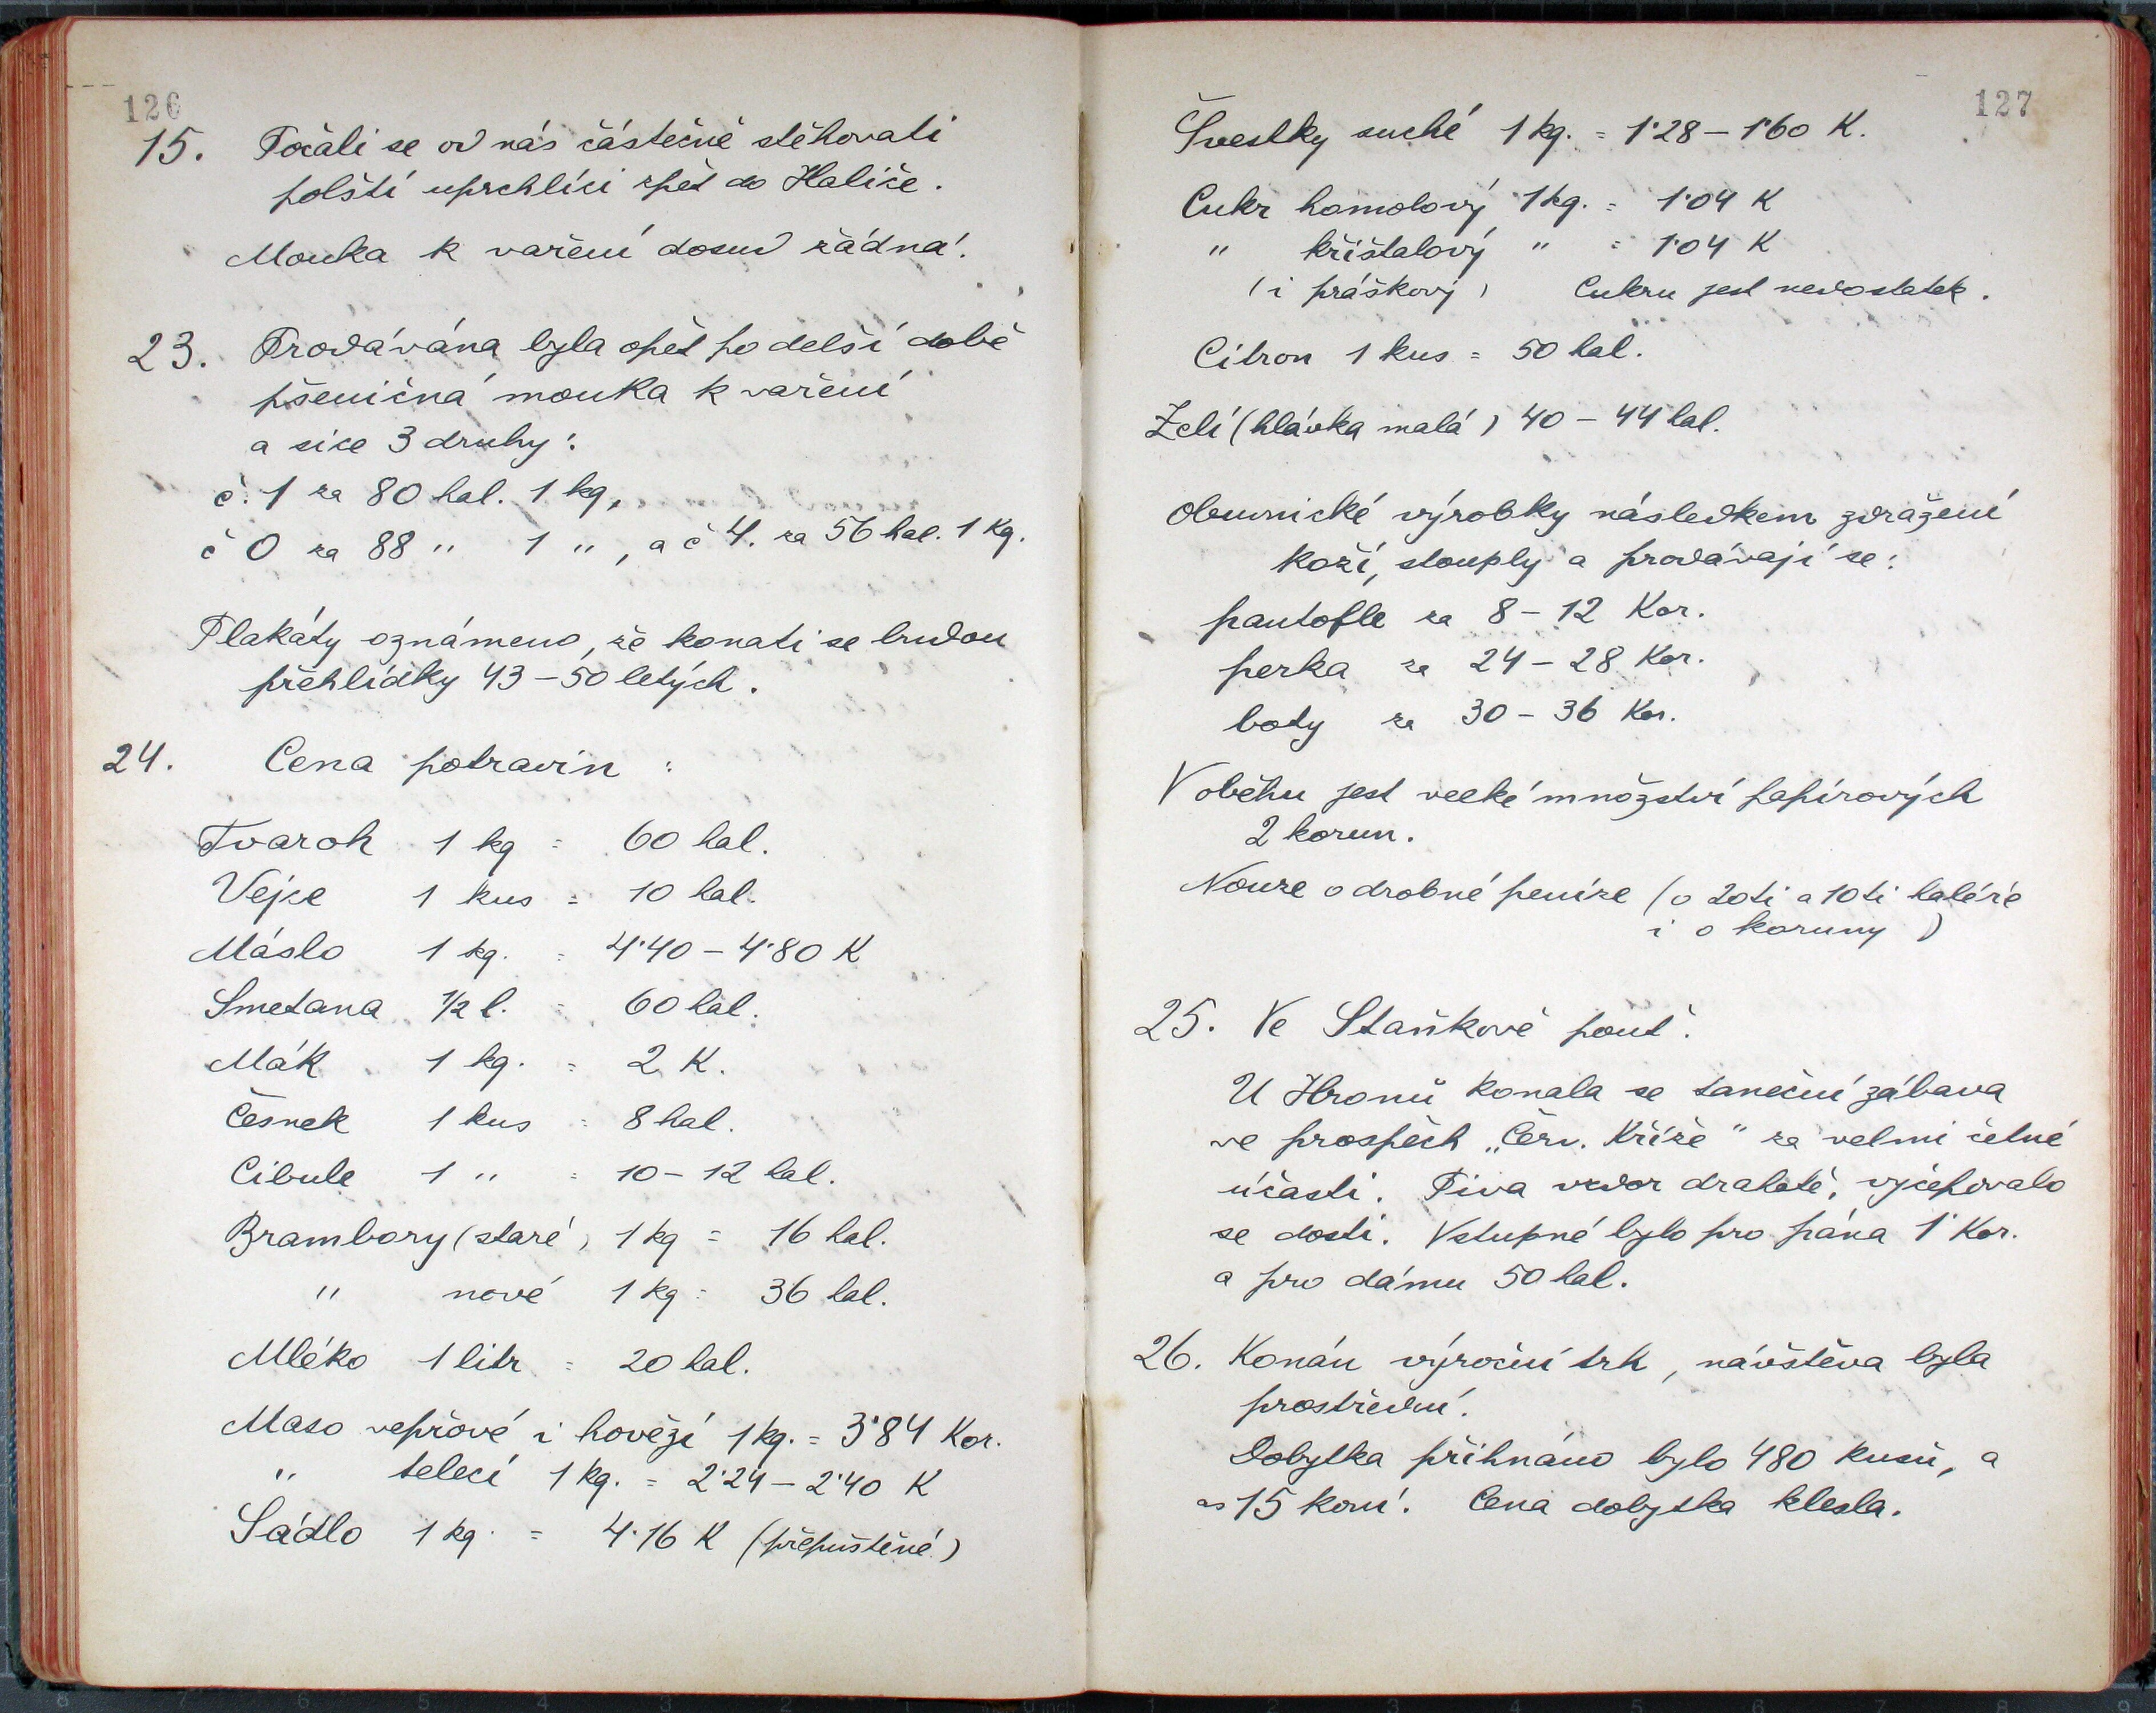 126
15. Počali se od nás částečně stěhovati
polští uprchlíci zpět do Haliče.
Mouka k vaření dosud žádná.
23. Prodávána byla opět po delší době
pšeničná mouka k vaření
a sice 3 druhy:
č. 1 za 80 hal. 1 kg,
č 0 za 88 " 1 ", a č 4. za 56 hal. 1 Kg.
Plakáty oznámeno, že konati se budou
přehlídky 43 – 50 letých.
24. Cena potravin :
Tvaroh 1 kg = 60 hal.
Vejce 1 kus = 10 hal.
Máslo 1 kg. = 4·40 – 4·80 K
Smetana 1/2 l. = 60 hal.
Mák 1 kg. = 2 K.
Česnek 1 kus = 8 hal.
Cibule 1 " = 10 – 12 hal.
Brambory (staré) 1 kg = 16 hal.
" nové 1 kg = 36 hal.
Mléko 1 litr = 20 hal.
Maso vepřové i hovězí 1 kg. = 3·84 Kor.
" telecí 1 kg. = 2·24 – 2·40 K
Sádlo 1 kg. = 4·16 K (přepuštěné)
127
Švestky suché 1 kg. = 1·28 – 1·60 K.
Cukr homolový 1 kg. = 1·04 K
" křištalový " = 1·04 K
(i práškový) Cukru jest nedostatek.
Citron 1 kus = 50 hal.
Zelí (hlávka malá) 40 – 44 hal.
Obuvnické výrobky následkem zdražení
koží, stouply a prodávají se:
pantofle za 8 – 12 Kor.
perka za 24 – 28 Kor.
boty za 30 – 36 Kor.
V oběhu jest velké množství papírových
2 korun.
Nouze o drobné peníze (o 20ti a 10ti haléře
i o koruny)
25. Ve Staňkově pouť.
U Hronů konala se taneční zábava
ve prospěch „Červ. Kříže" za velmi četné
účasti. Piva vzdor drahotě, vyčepovalo
se dosti. Vstupné bylo pro pána 1 Kor.
a pro dámu 50 hal.
26. Konán výroční trh, návštěva byla
prostřední.
Dobytka přihnáno bylo 480 kusů, a
as 15 koní. Cena dobytka klesla.